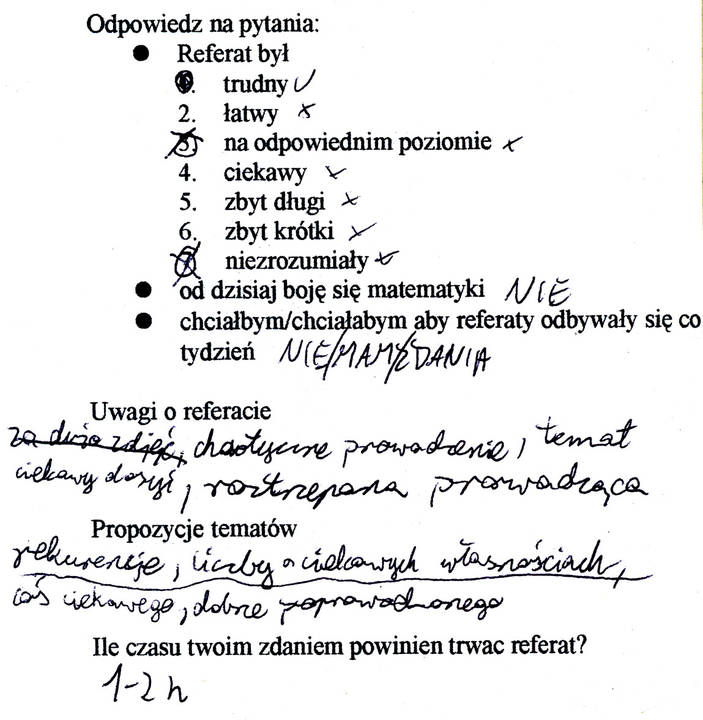 Odpowiedz na pytania:
● Referat był
1. trudny ✓
2. łatwy ×
3. na odpowiednim poziomie ×
4. ciekawy ×
5. zbyt długi ×
6. zbyt krótki ×
7. niezrozumiały ×
● od dzisiaj boję się matematyki NIE
● chciałbym/chciałabym aby referaty odbywały się co
tydzień NIE/MAM/ZDANIA
Uwagi o referacie
za dużo zdjęć, chaotyczne prowadzenie, temat
ciekawy dosyć, roztrzepana prowadząca
Propozycje tematów
rekurencje, liczby o ciekawych własnościach,
coś ciekawego, dobrze poprowadzonego
Ile czasu twoim zdaniem powinien trwac referat?
1-2 h